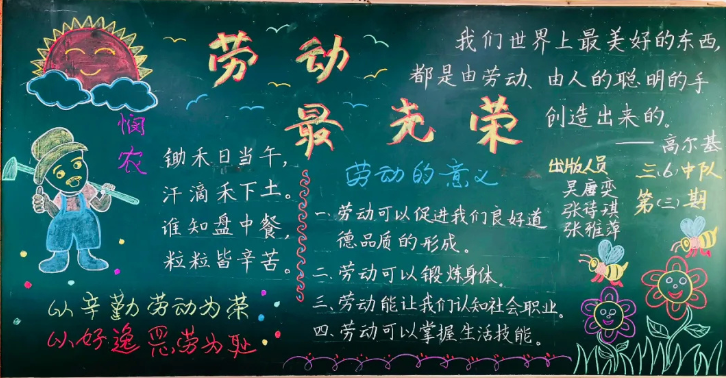 劳动
最光荣
我们世界上最美好的东西,
都是由劳动、由人的聪明的手
创造出来的。
——高尔基
悯农
锄禾日当午,
汗滴禾下土。
谁知盘中餐,
粒粒皆辛苦。
以辛勤劳动为荣
以好逸恶劳为耻
劳动的意义
一.劳动可以促进我们良好道
德品质的形成。
二.劳动可以锻炼身体。
三.劳动能让我们认知社会职业。
四.劳动可以掌握生活技能。
出版人员
吴唐雯
张诗琪
张雅萍
三(6)中队
第(三)期